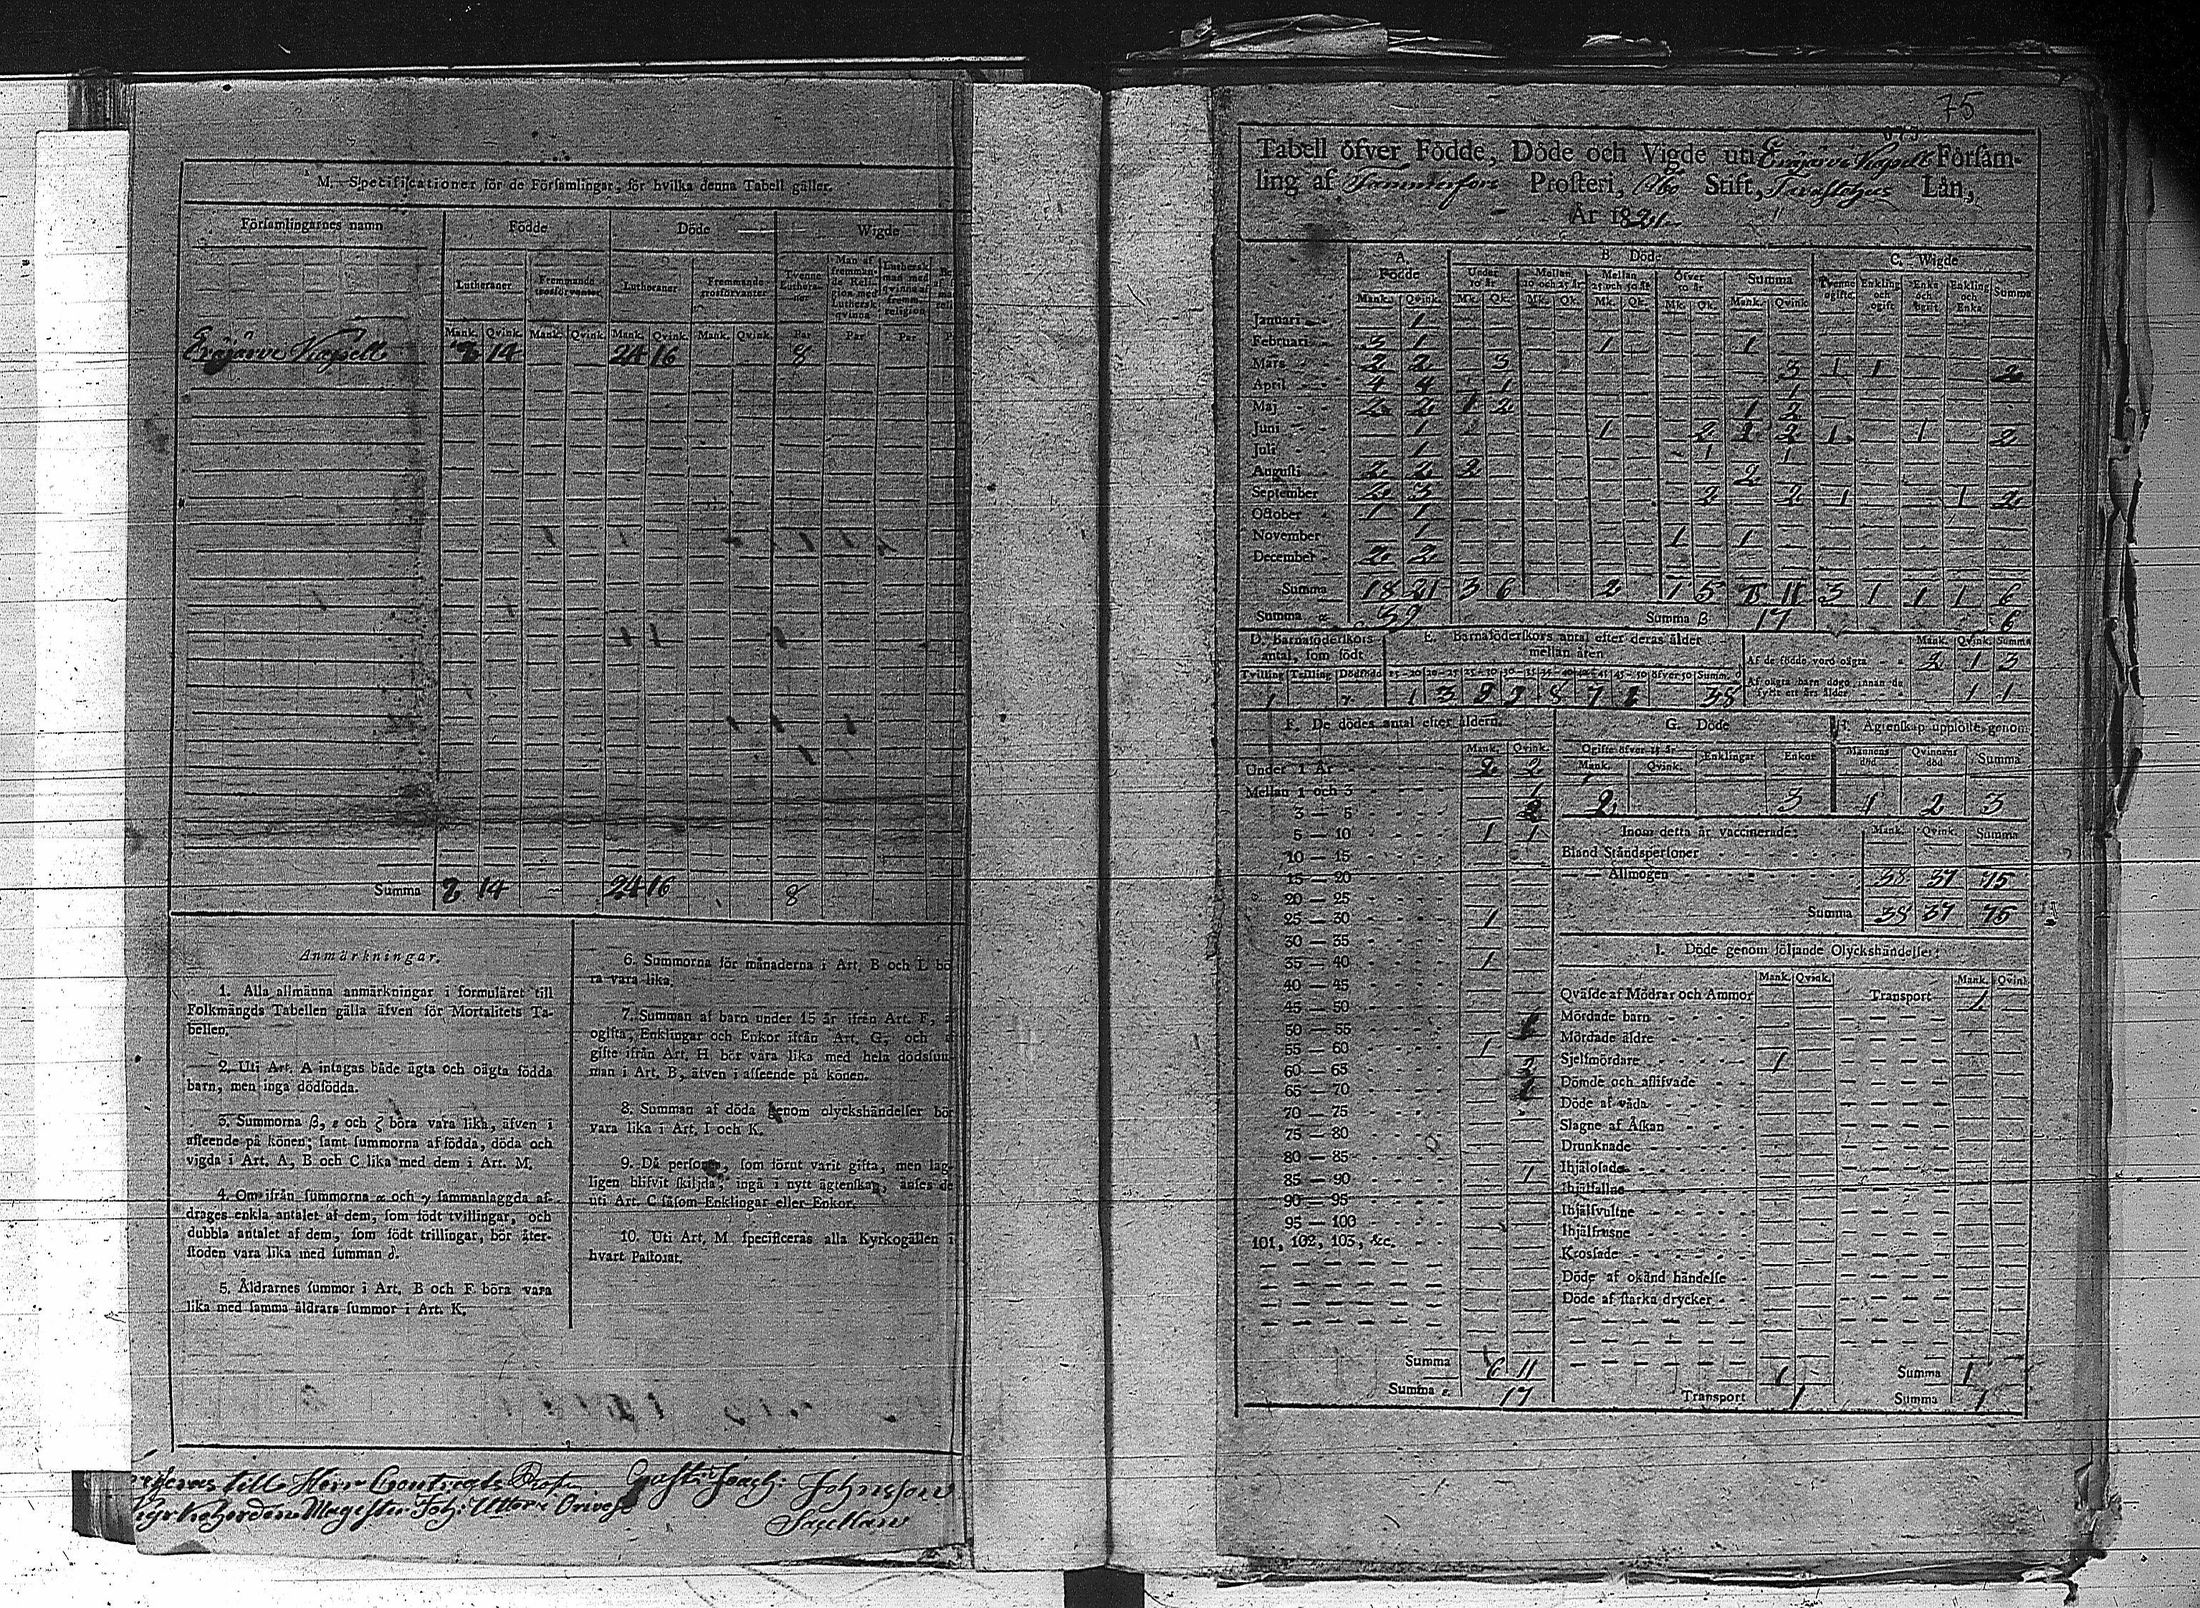 M. Specificationer för de Församlingar, för hvilka denna Tabell gäller.
Församlingarnes namn
Födde
Döde
Wigde
Lutheraner
Fremmande trosförvanter
Lutheraner
Fremmande trosförvanter
Twenne Lutheraner
Man af fremmande Religion med Luthersk qvinna
Luthersk man med qvinna af fremm. religion
Mank. Qvink. Mank. Qvink. Mank. Qvink. Mank. Qvink. Par Par Par
Eräjärvi Kapell 14 24 16 8
Summa 14 24 16 8
Anmärkningar.
1. Alla allmänna anmärkningar i formuläret till
Folkmängds Tabellen gälla äfven för Mortalitets Ta-
bellen.
2. Uti Art. A intagas både ägta och oägta födda
barn, men inga dödfödda.
3. Summorna β, ε och ζ böra vara lika, äfven i
afseende på könen; samt summorna af födda, döda och
vigda i Art. A, B och C lika med dem i Art. M.
4. Om ifrån summorna α och γ sammanlaggda af-
drages enkla antalet af dem, som födt tvillingar, och
dubbla antalet af dem, som födt trillingar, bör åter-
stoden vara lika med summan δ.
5. Åldrarnes summor i Art. B och F böra vara
lika med samma åldrars summor i Art. K.
6. Summorna för månaderna i Art. B och L bö
ra vara lika.
7. Summan af barn under 15 år ifrån Art. F,
ogifta, Enklingar och Enkor ifrån Art. G, och
gifte ifrån Art. H bör vara lika med hela dödssum
man i Art. B, äfven i afseende på könen.
8. Summan af döda genom olyckshändelser bör
vara lika i Art. I och K.
9. Då personer, som förut varit gifta, men lag-
ligen blifvit skiljda, ingå i nytt ägtenskap, anses de
uti Art. C såsom Enklingar eller Enkor.
10. Uti Art. M specificeras alla Kyrkogällen i
hvart Pastorat.
till Herr Contracts
Kyrkoherden Magister Joh: Orivesi
Johnsson
Sacellan
75
Tabell öfver Födde, Döde och Vigde uti Eräjärvi Kapells Försam-
ling af Tammerfors Prosteri, Åbo Stift, Tavastehus Län,
År 1821
A. Födde
B. Döde
C. Wigde
Under 10 år
Mellan 10 och 25 år
Mellan 25 och 50 år
Öfver 50 år
Summa
Tvenne ogifte
Enkling och ogift
Enka och ogift
Enkling och Enka
Summa
Mank. Qvink. Mk. Qk. Mk. Qk. Mk. Qk. Mk. Qk. Mank. Qvink
Januari 1
Februari 3 1 1 1
Mars 2 2 3 3 1 1 2
April 4 4 1 1
Maj 2 2 1 2 1 2
Juni 1 1 2 2 1 1 2
Juli 1 1 1
Augusti 2 2 2 2
September 2 3 2 2 1 1 2
October 1 1
November 1 1 1
December 2 2
Summa 18 21 3 6 2 1 5 11 3 1 1 1 6
Summa α 39 Summa β 17 6
D. Barnaföderskors antal, som födt
Tvilling Trilling Dödfödd
1
E. Barnaföderskors antal efter deras ålder
mellan åren
15-20 20-25 25-30 30-35 35-40 40-45 45-50 öfver 50 Summ. δ
1 3 8 7 38
Mank. Qvink. Summa
Af de födde voro oägta 2 1 3
Af oägta barn dogo innan de
fyllt ett års ålder 1 1
F. De dödes antal efter åldern.
Mank. Qvink.
Under 1 År 2 2
Mellan 1 och 3 1
3 — 5
5 — 10 1 1
10 — 15
15 — 20
20 — 25
25 — 30 1
30 — 35
35 — 40 1
40 — 45
45 — 50
50 — 55
55 — 60 1
60 — 65
65 — 70
70 — 75
75 — 80
80 — 85
85 — 90 1
90 — 95
95 — 100
101, 102, 103, &c.
Summa 6 11
Summa ε. 17
G. Döde
Ogifte öfver 15 år
Mank. Qvink. Enklingar Enkor
2 3
H. Ägtenskap upplöste genom
Mannens död Qvinnans död Summa
1 2 3
Inom detta år vaccinerade: Mank. Qvink. Summa
Bland Ståndspersoner
— Allmogen 38 37 75
Summa 38 37 75
I. Döde genom följande Olyckshändelser:
Mank. Qvink. Mank. Qvink
Qväfde af Mödrar och Ammor Transport 1
Mördade barn
Mördade äldre
Sjelfmördare 1
Dömde och aflifvade
Döde af våda
Slagne af Åskan
Drunknade
Ihjälosade
Ihjälfallne
Ihjälsvultne
Ihjälfrusne
Krossade
Döde af okänd händelse
Döde af starka drycker
1 Summa 1
Transport 1 Summa 1